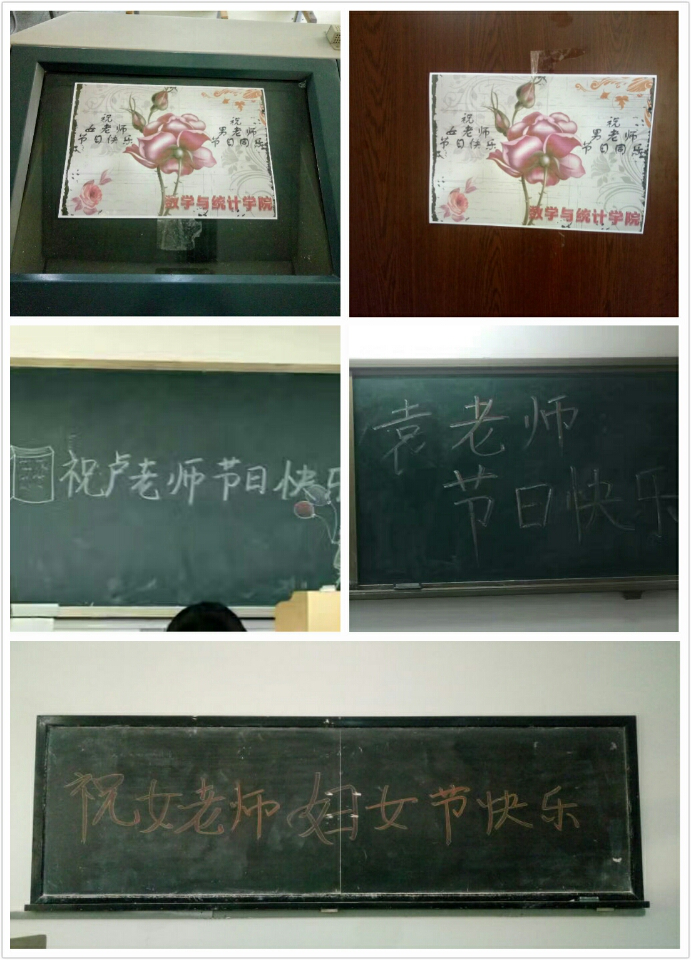 祝
女老师
节日快乐
祝
男老师
节日同乐
数学与统计学院
祝
女老师
节日快乐
祝
男老师
节日同乐
数学与统计学院
祝卢老师节日快乐
袁老师
节日快乐
祝女老师妇女节快乐